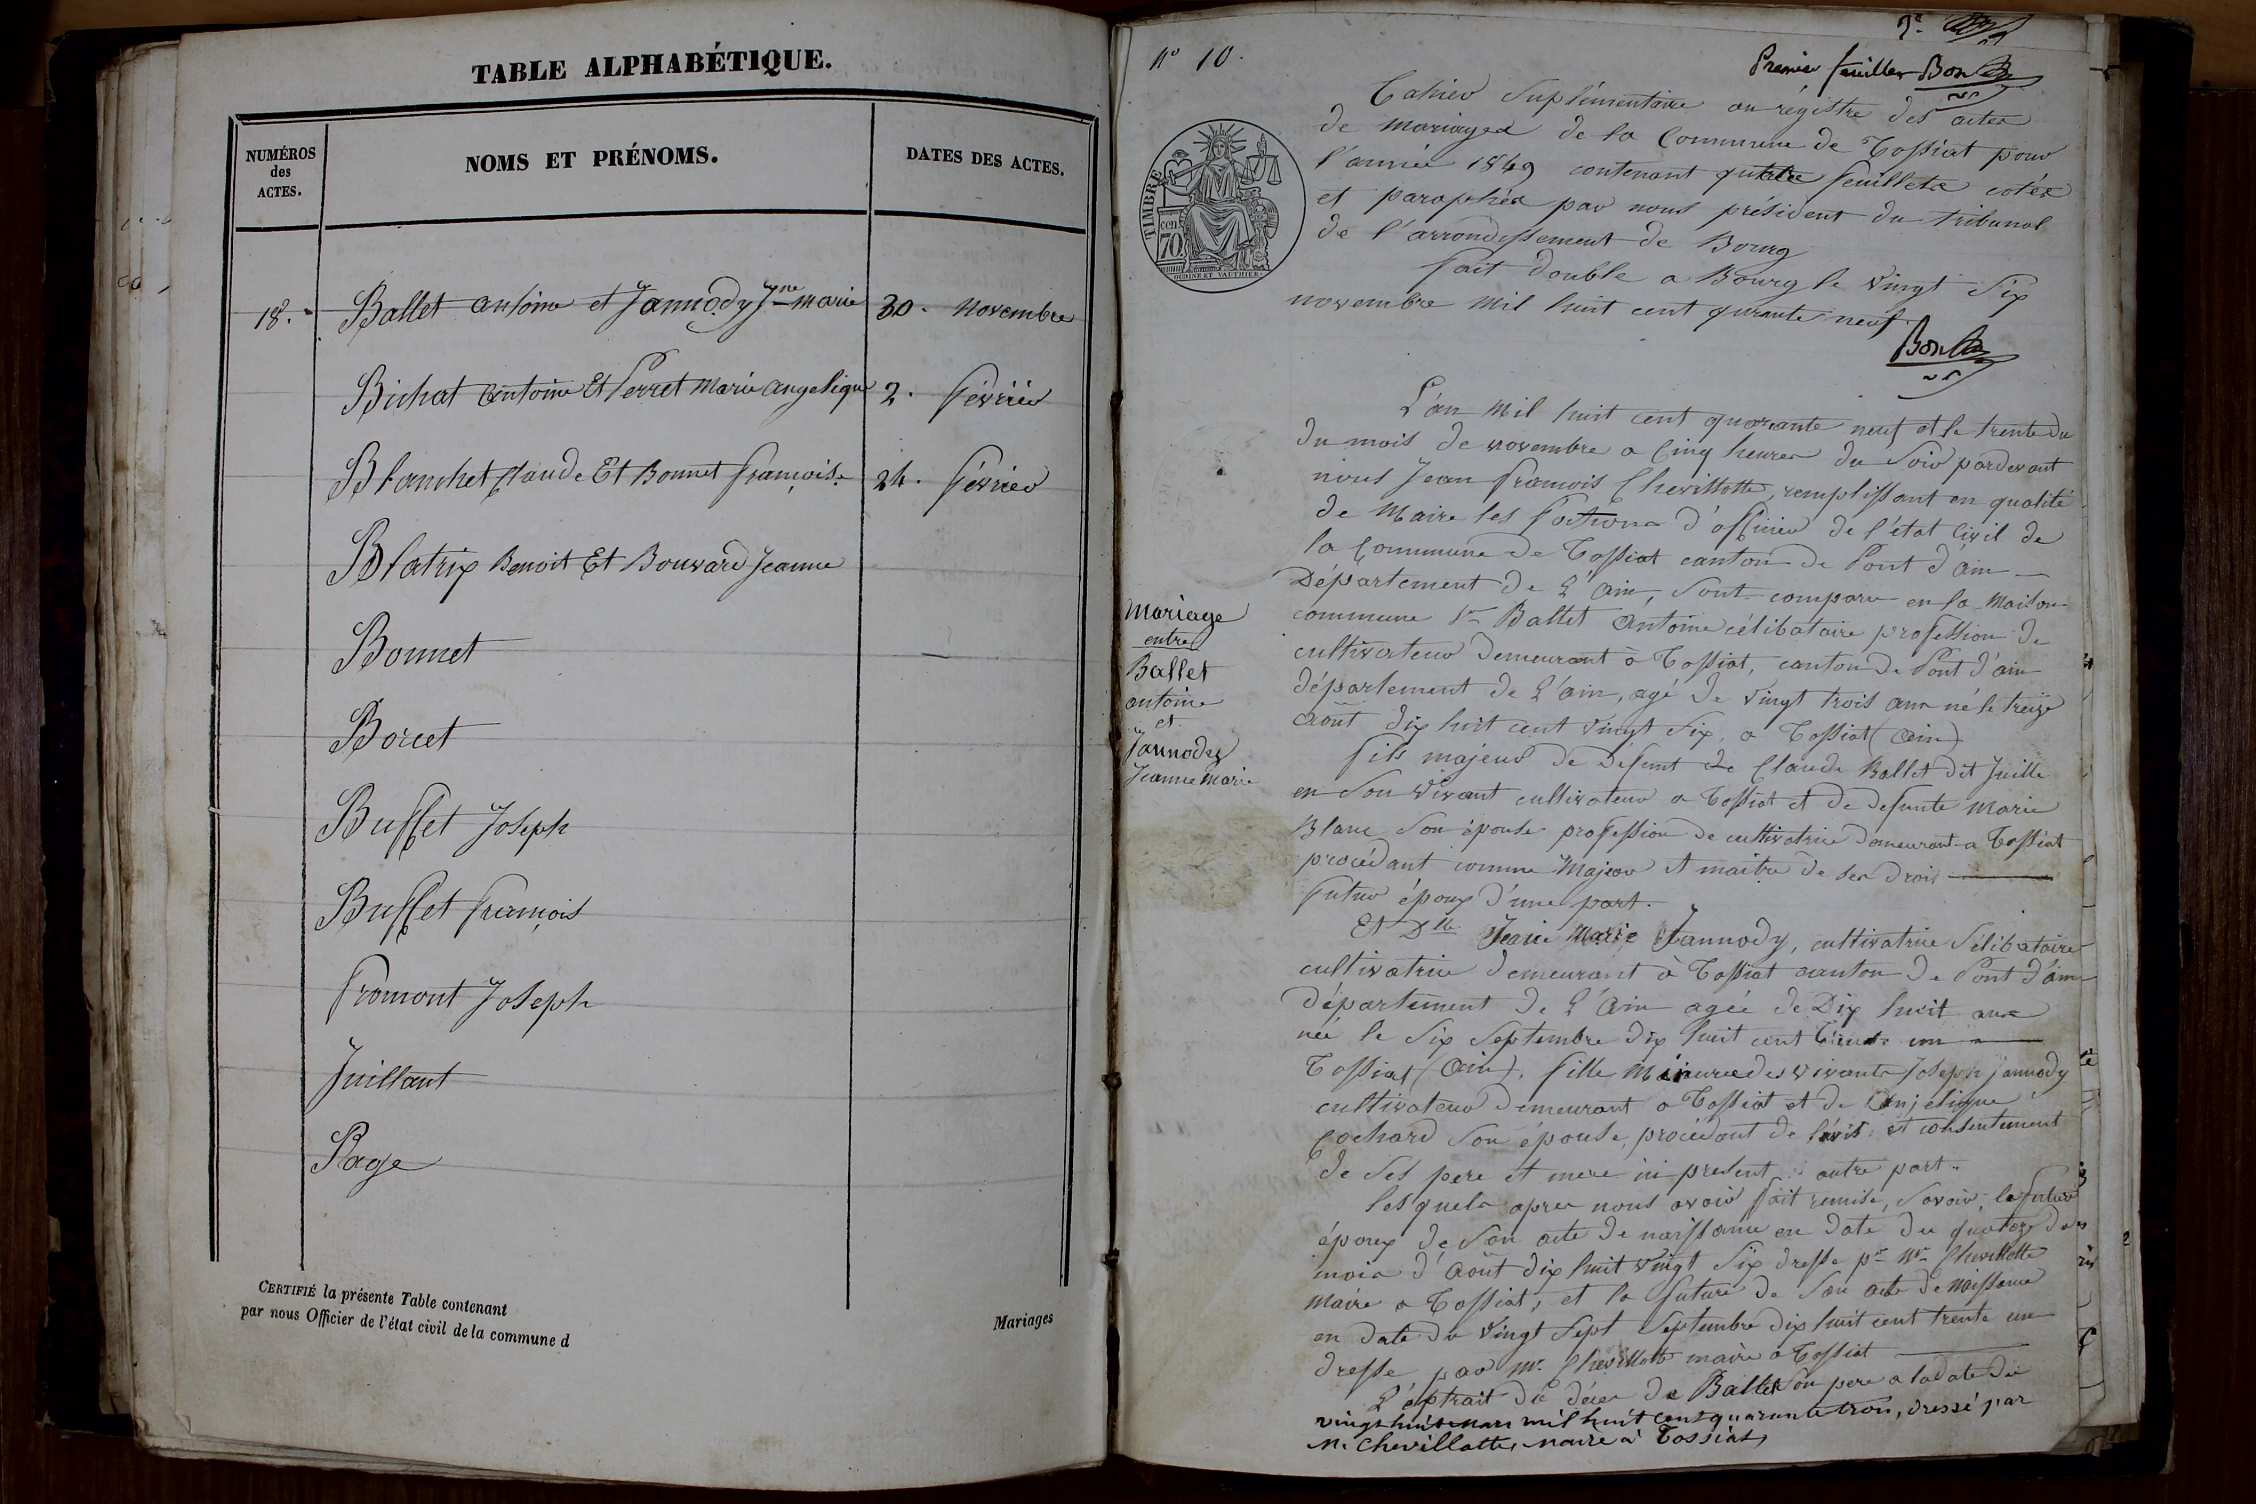 TABLE ALPHABÉTIQUE.
NUMÉROS
des
ACTES.
NOMS ET PRÉNOMS.
DATES DES ACTES.
18. Ballet antoine et Jannody Jne marie 30. Novembre
Bichat Antoine Et Perret Marie angelique 2. février
Blanchet Claude Et Bonnet françoise. 24. février
Blatrix Benoit Et Bouvard Jeanne
Bonnet
Borcet
Buffet Joseph
Buffet françois
Fromont Joseph
Juillant
Page
CERTIFIÉ la présente Table contenant
Mariages
par nous Officier de l'état civil de la commune d
No 10.
Premier feuillet Bon
Cahier Suplémentaire au régistre des actes
de mariages de la Commune de Tossiat pour
l'année 1849 contenant quatre feuillets cotés
et paraphés par nous président du tribunal
de l'arrondissement de Bourg
fait double a Bourg le vingt Six
novembre mil huit cent qurante neuf
TIMBRE
70 cen
OUDINE ET VAUTHIER
L'an Mil huit cent quarante neuf et le trente du
du mois de novembre a Cinq heures du Soir pardevant
nous Jean francois Chevillotte, remplissant en qualité
de Maire les foctions d'officier de l'état Civil de
la Commune de Tossiat canton de Pont d'ain
Département de L'Ain, Sont comparu en la Maison
commune Sr Ballet Antoine célibataire profession de
cultivateur Demeurant à Tossiat, canton de Pont d'ain
département de L'ain, agé de vingt trois ans né le treize
Août dix huit cent vingt Six, a Tossiat (Ain)
fils majeur de Défunt de Claude Ballet dit Juille
en Son vivant cultivateur a Tossiat et de defunte Marie
Blanc Son épouse profession de cultivatrice demeurant a Tossiat
procédant comme Majeur et maitre de ses droit
futur époux d'une part.
Mariage
entre
Ballet
antoine
et
Jannody
Jeanne Marie
Et Dlle Jeane Marie Jannody, cultivatrice Sélibataire
cultivatrice demeurant à Tossiat canton de Pont d'ain
département de L'Ain agée de Dix huit ans
née le Six Septembre dix huit cent trente un a
Tossiat (Ain). fille Mineure des vivants Joseph Jannody
cultivateur Demeurant a Tossiat et de Anjelique
Cochard Son épouse, procédant de l'avis et consentement
de Ses pere et mere ici present autre part.
lesquels apres nous avoir fait remise, Savoir, le futur
époux de Son acte de naissance en date du quatorze du
mois d'Août dix huit vingt Six dresse pr Mr Chevillotte
Maire a Tossiat, et la future de Son acte de Naissance
en date du vingt Sept Septembre dix huit cent trente un
dresse par Mr. Chevillotte maire a Tossiat
L'extrait du déces de Ballet Son pere a la date du
vingt huit mars mil huit cent quarante trois, dressé par
M. Chevillotte, maire à Tossiat,